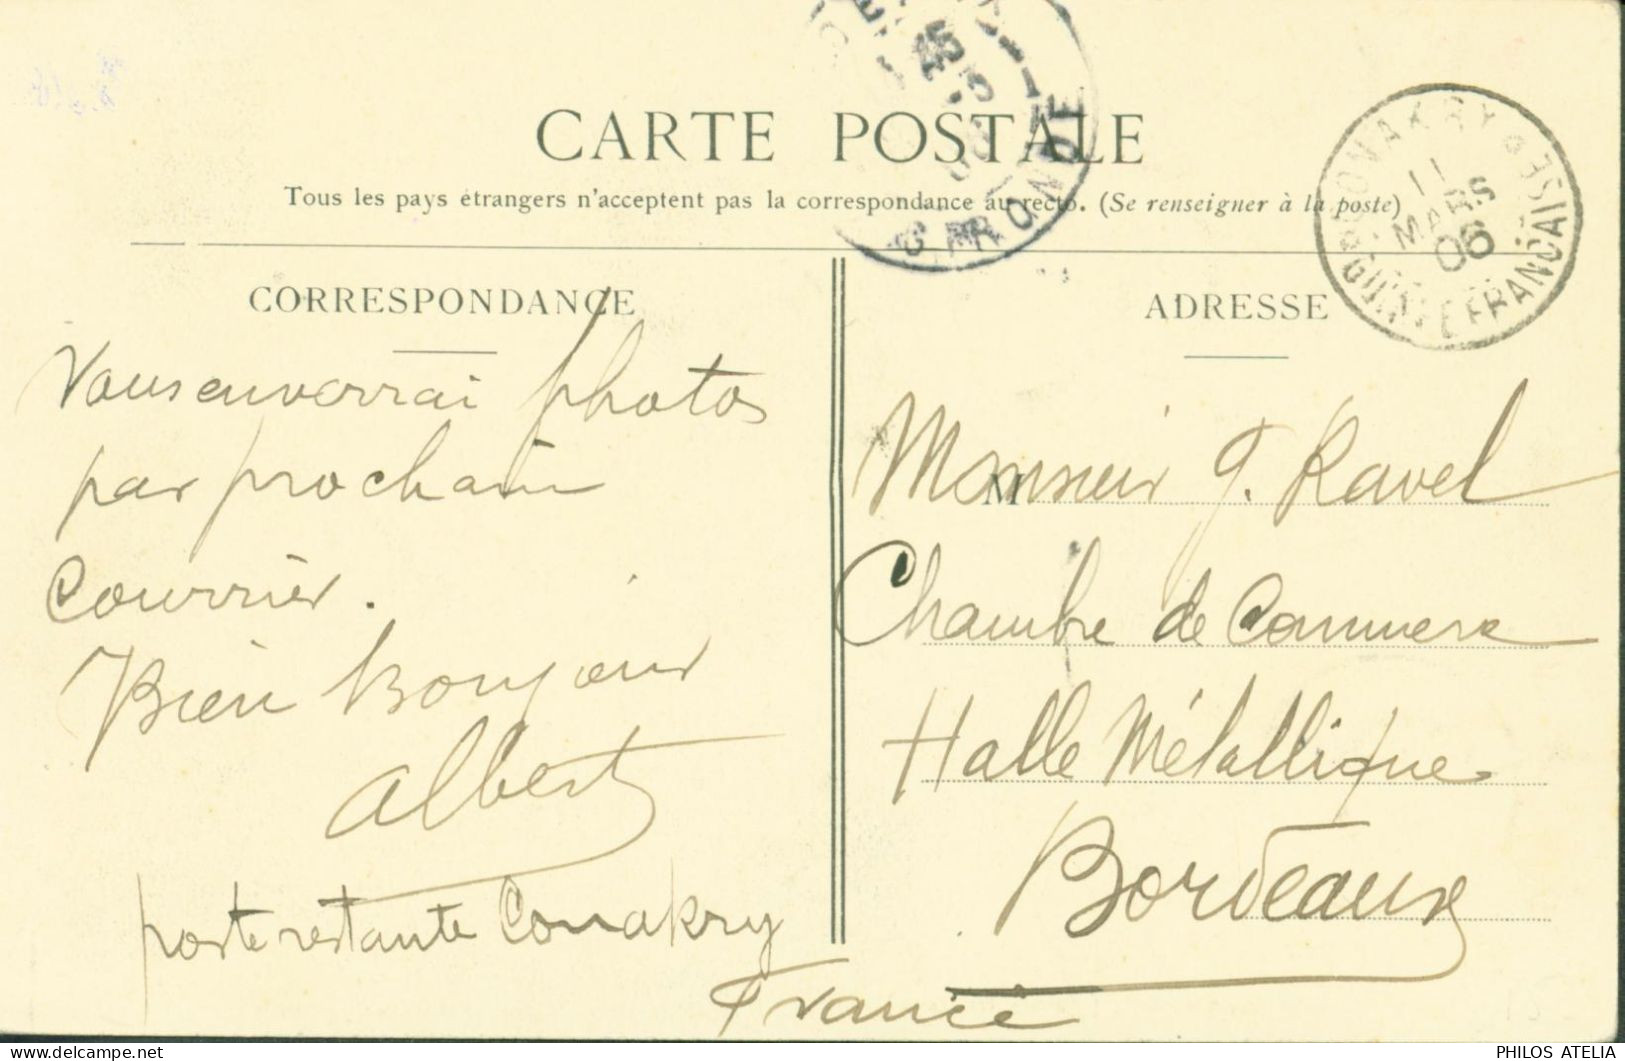 CARTE POSTALE
Tous les pays étrangers n'acceptent pas la correspondance au recto. (Se renseigner à la poste)
CONAKRY
11
MARS
06
GUINÉE FRANÇAISE
GIRONDE
CORRESPONDANCE
Vous enverrai photos
par prochain
Courrier.
Bien bonjour
Albert
poste restante Conakry
ADRESSE
M
Monsieur G. Ravel
Chambre de Commerce
Halle Métallique
Bordeaux
France
PHILOS ATELIA